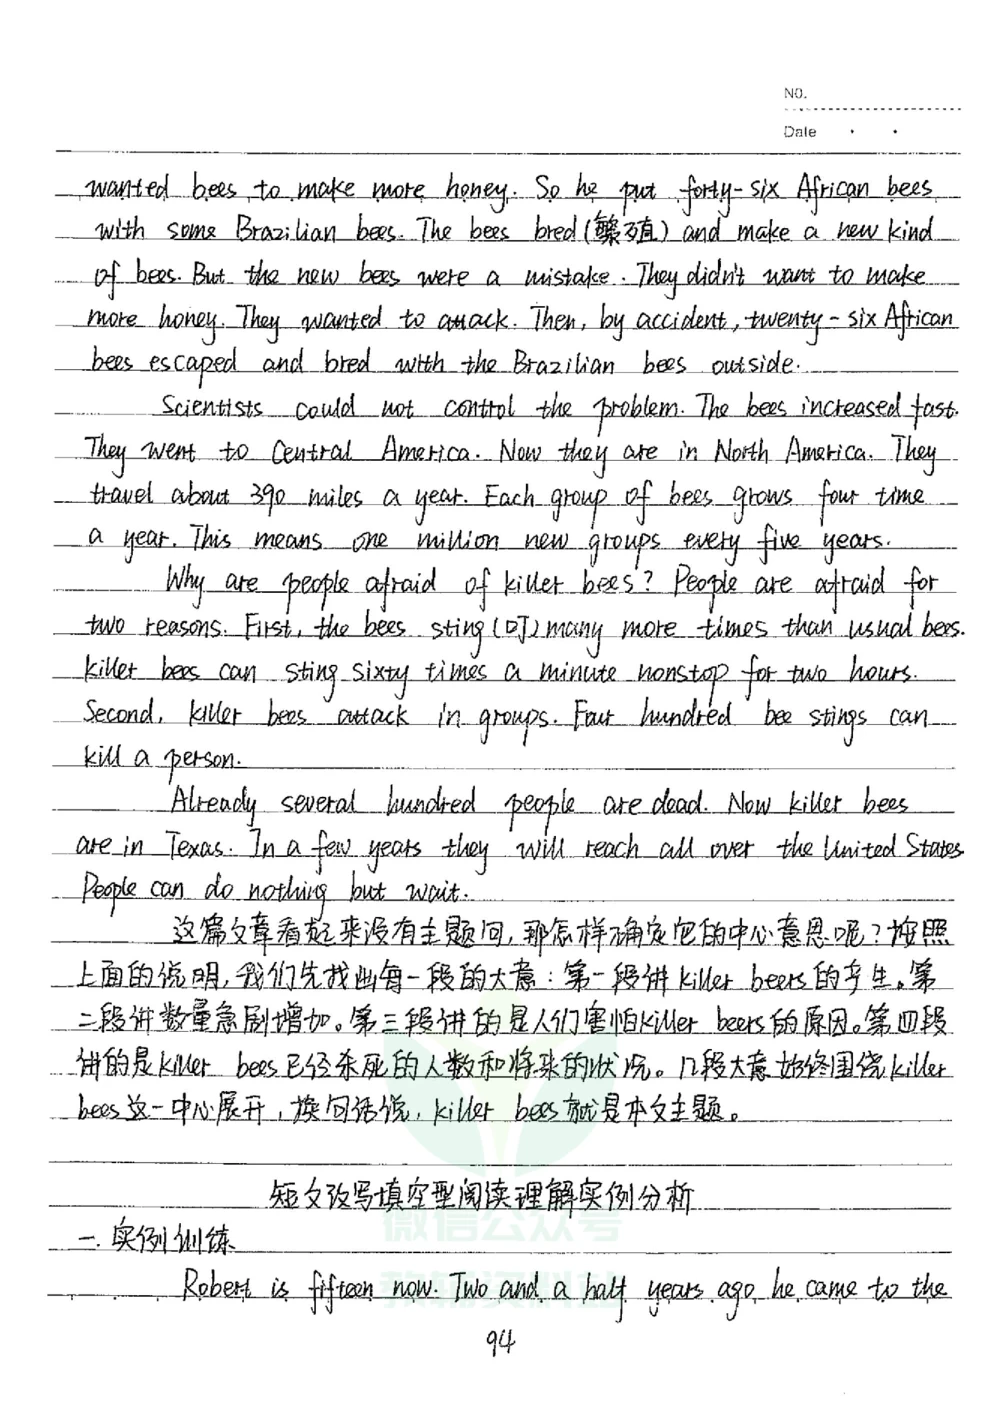 NO.
Date
wanted bees to make more honey. So he put forty-six African bees
with some Brazilian bees. The bees bred (繁殖) and make a new kind
of bees. But the new bees were a mistake. They didn't want to make
more honey. They wanted to attack. Then, by accident, twenty-six African
bees escaped and bred with the Brazilian bees outside.
Scientists could not control the problem. The bees increased fast.
They went to Central America. Now they are in North America. They
travel about 390 miles a year. Each group of bees grows four time
a year. This means one million new groups every five years.
Why are people afraid of killer bees? People are afraid for
two reasons. First, the bees sting (叮) many more times than usual bees.
Killer bees can sting sixty times a minute nonstop for two hours.
Second, killer bees attack in groups. Four hundred bee stings can
kill a person.
Already several hundred people are dead. Now killer bees
are in Texas. In a few years they will reach all over the United States.
People can do nothing but wait.
这篇文章看起来没有主题问,那怎样确定它的中心意思呢?按照
上面的说明,我们先找出每一段的大意:第一段讲 killer beers的产生。第
二段讲数量急剧增加。第三段讲的是人们害怕killer beers的原因。第四段
讲的是killer bees已经杀死的人数和将来的状况。几段大意始终围绕killer
bees这一中心展开,换句话说,killer bees就是本文主题。
短文改写填空型阅读理解实例分析
一.实例训练
Robert is fifteen now. Two and a half years ago he came to the
94
微信公众号
教辅资料站